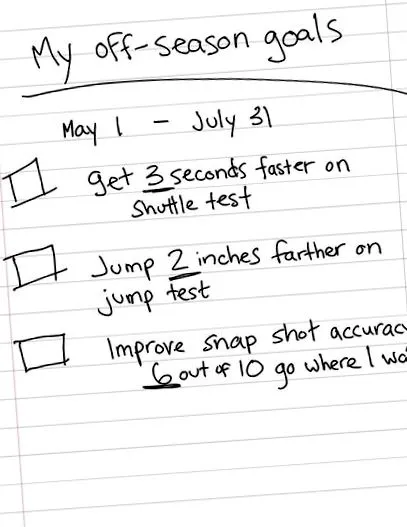 My off-season goals
May 1 - July 31
get 3 seconds faster on
shuttle test
Jump 2 inches farther on
jump test
Improve snap shot accuracy
6 out of 10 go where I